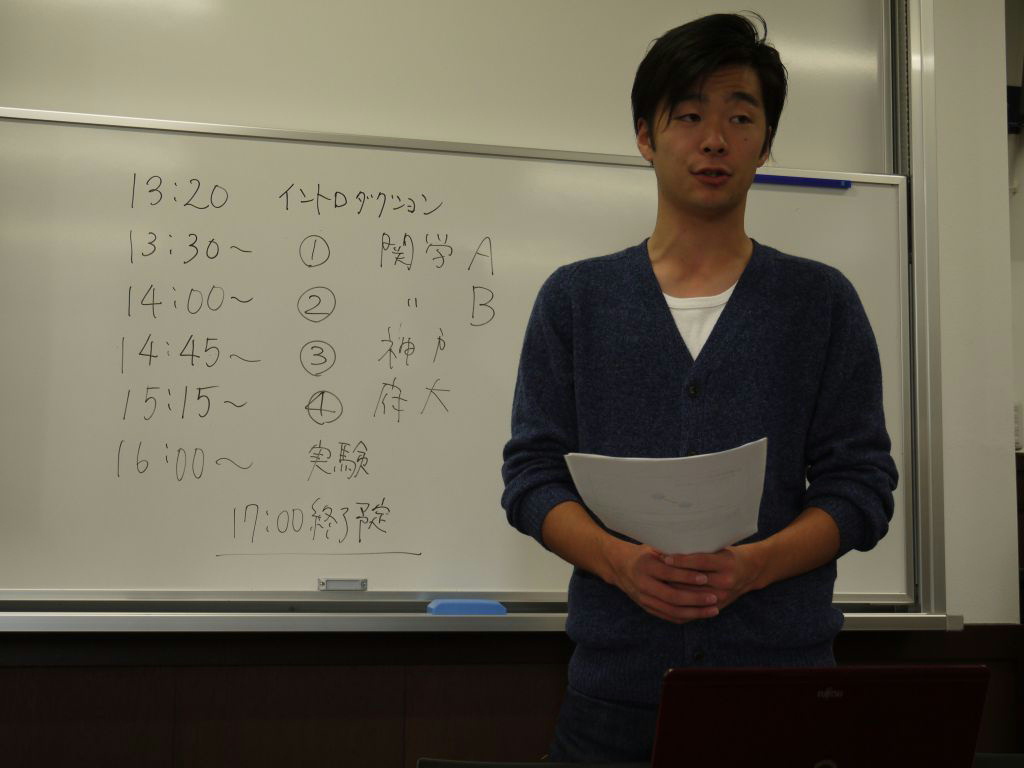 13:20 イントロダクション
13:30～ ① 関学 A
14:00～ ② 〃 B
14:45～ ③ 神戸
15:15～ ④ 府大
16:00～ 実験
17:00終了予定
FUJITSU